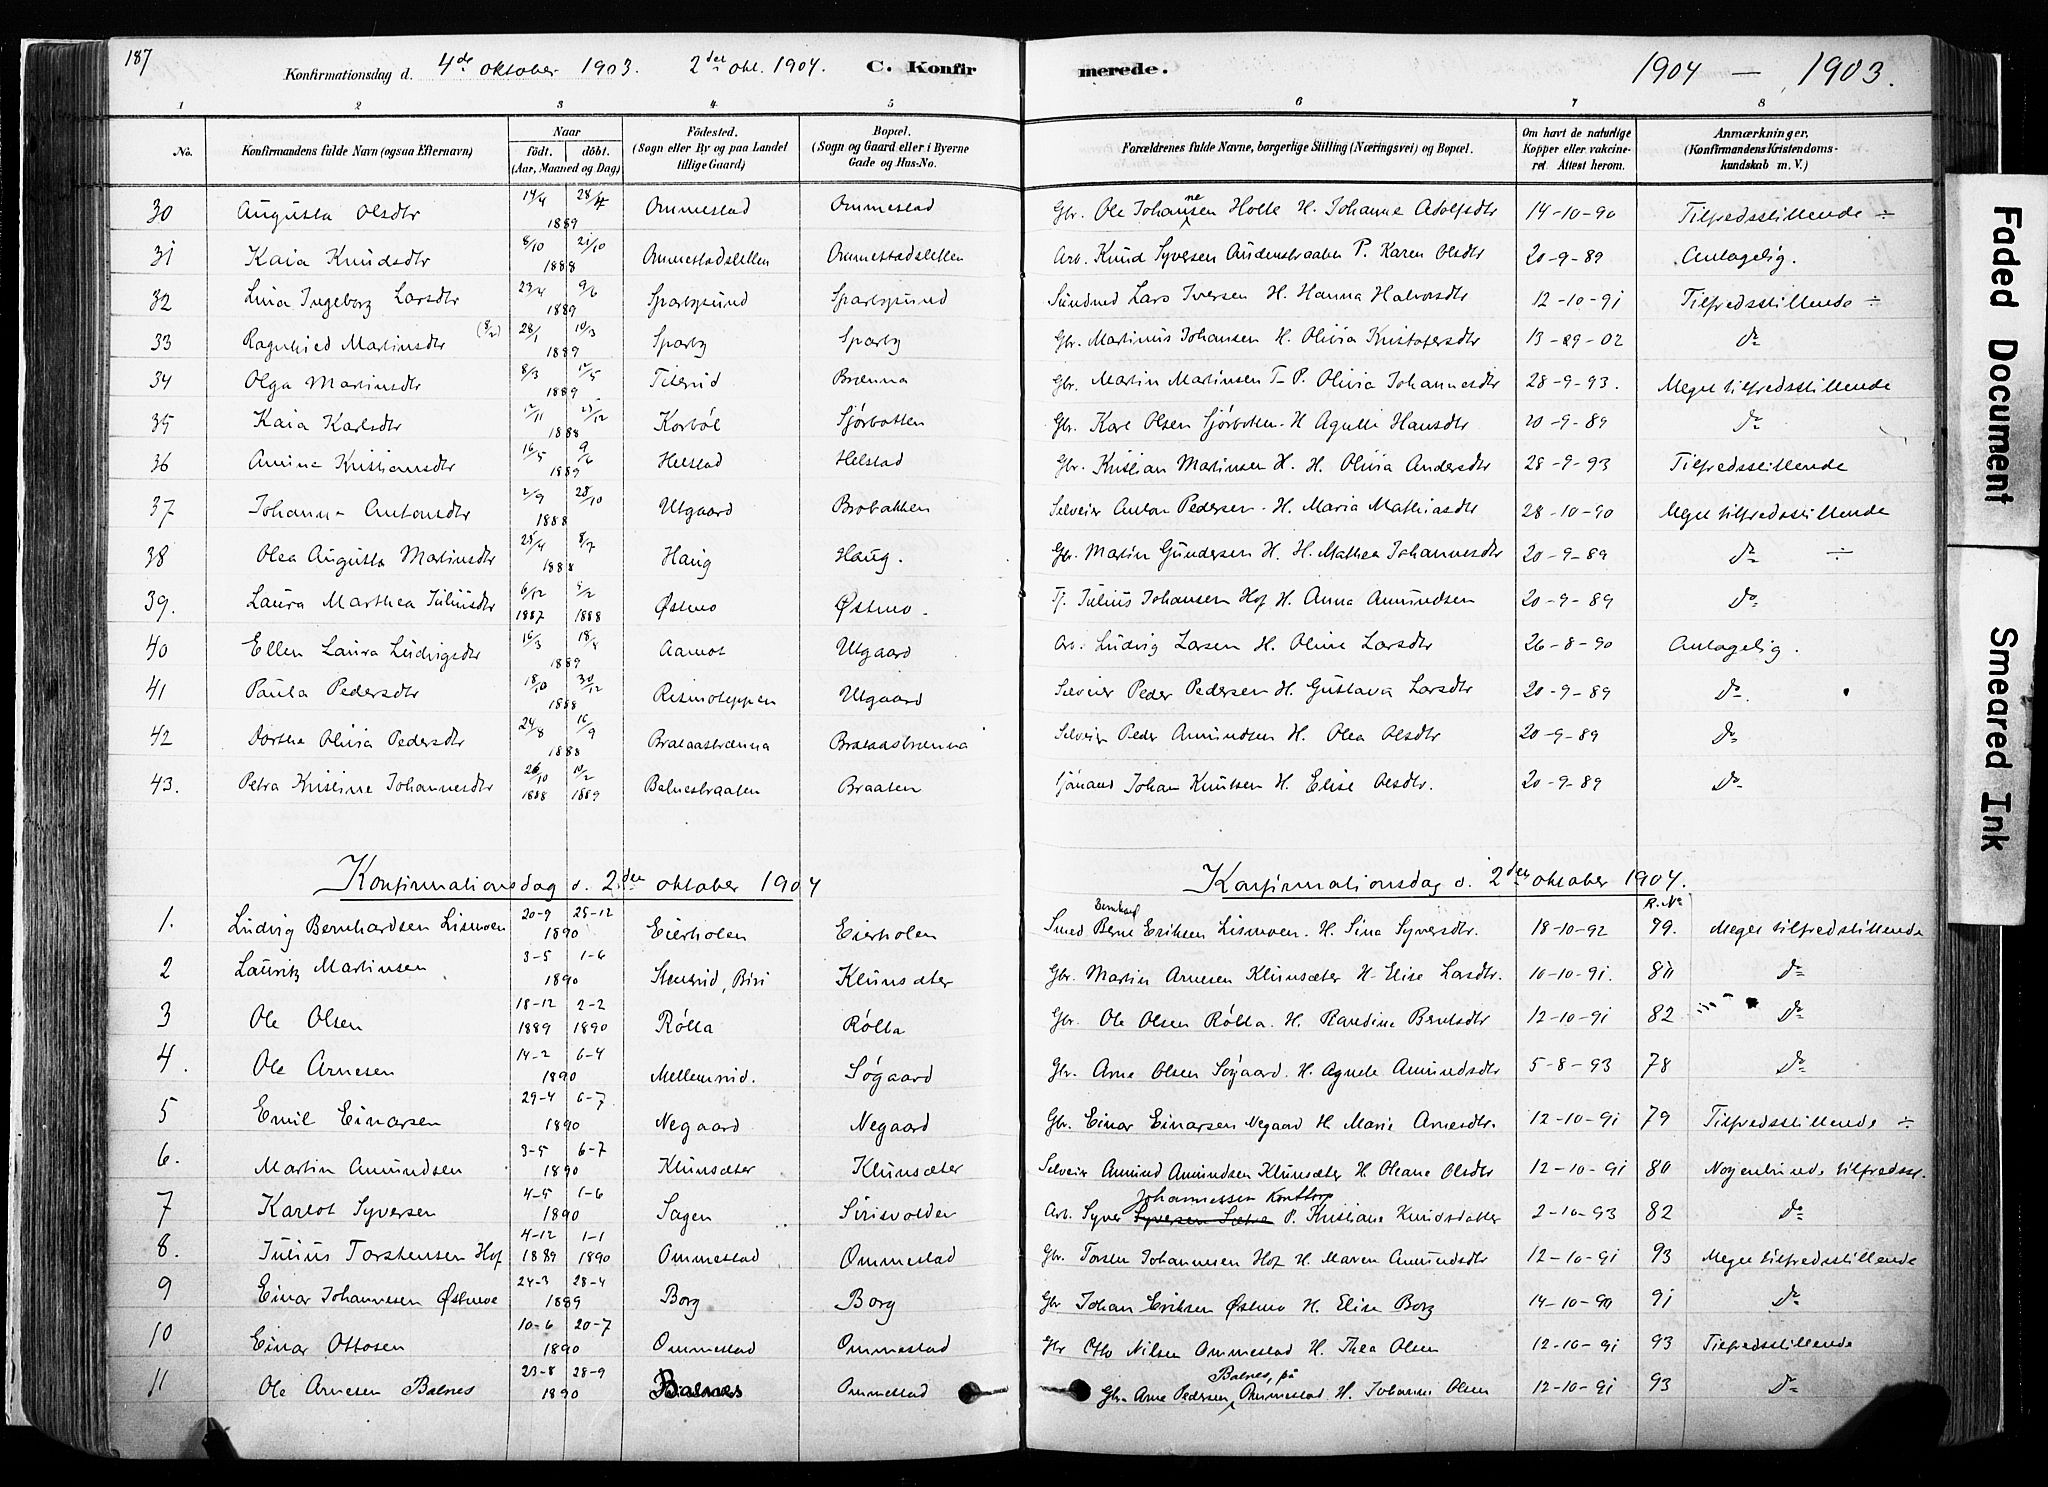 187
Konfirmationsdag d. 4de oktober 1903. 2den okt. 1904. C. Konfirmerede. 1904 — 1903.
1 2 3 4 5 6 7 8
No. Konfirmandens fulde Navn (ogsaa Efternavn) Naar födt. döbt. (Aar, Maaned og Dag) Födested. (Sogn eller By og paa Landet tillige Gaard) Bopæl. (Sogn og Gaard eller i Byerne Gade og Hus-No. Forældrenes fulde Navne, borgerlige Stilling (Næringsvei) og Bopæl. Om havt de naturlige Kopper eller vakcineret. Attest herom. Anmærkninger. (Konfirmandens Kristendomskundskab m. V.)
30 Augusta Olsdtr 14/4 28/4 1889 Ommestad Ommestad Gbr. Ole Johannesen Holte H. Johanne Adolfsdtr 14-10-90 Tilfredsstillende ÷
31 Kaia Knudsdtr 8/10 21/10 1888 Ommestadsletten Ommestadsletten Arb. Knud Syversen Audenbraaten P. Karen Olsdtr 20-9-89 Antagelig.
32 Lina Ingeborg Larsdtr 23/4 9/6 1889 Sparbysund Sparbysund Lars Iversen H. Hanna Halvorsdtr 12-10-91 Tilfredsstillende ÷
33 Ragnhild Martinsdtr (8/2) 28/1 10/3 1889 Sparby Sparby Gbr. Martinus Johansen H. Olivia Kristofersdtr 13-29-02 do
34 Olga Martinsdtr 8/3 12/5 1889 Titerud Brænna Gbr. Martin Martinsen T- P. Olivia Johannesdtr 28-9-93. Meget tilfredsstillende
35 Kaia Karlsdtr 12/11 25/12 1888 Korböl Sjörbotten Gbr. Karl Olsen Sjörbotten H Agnethe Hansdtr 20-9-89 do
36 Amine Kristiansdtr 16/5 9/6 1889 Helstad Helstad Gbr. Kristian Martinsen H. H. Olivia Andersdtr 28-9-93 Tilfredsstillende
37 Johanna Antonsdtr 2/9 28/10 1888 Utgaard Brobakken Selveier Anton Pedersen H. Maria Mathiasdtr 28-10-90 Meget tilfredsstillende
38 Olea Augusta Martinsdtr 25/4 8/7 1888 Haug Haug. Gbr. Martin Gundersen H. H. Mathea Johannesdtr 20-9-89 do ÷
39. Laura Marthea Juliusdtr 6/12 1887 5/2 1888 Østmo Østmo - Tj. Julius Johansen Hof H. Anna Amundsen 20-9-89 do
40 Ellen Laura Ludvigsdtr 16/3 18/8 1889 Aamot Utgaard Arb. Ludvig Larsen H. Oline Larsdtr 26-8-90 Antagelig.
41 Paula Pedersdtr 18/10 30/12 1888 Rismoteppen Utgaard Selveier Peder Pedersen H. Gustava Larsdtr 20-9-89 do
42 Dorthe Olivia Pedersdtr 24/8 16/9 1888 Brataasbrænna Brataasbrænna Selveier Peder Amundsen H. Olea Olsdtr 20-9-89 do
43. Petra Kristine Johannesdtr 26/10 1888 10/2 1889 Balnesbraaten Braaten Johan Knutsen H. Elise Olsdtr. 20-9-89 do
Konfirmationsdag d. 2den oktober 1904 Konfirmationsdag d. 2den oktober 1904.
R. No
1. Ludvig Bernhardsen Lismoen 20-9 25-12 1890 Eierholen Eierholen Smed Bernhard Eriksen Lismoen. H. Sina Syversdtr. 18-10-92 79. Meget tilfredstillende
2 Lauritz Martinsen 3-5 1-6 1890 Stensrud, Biri Klunsæter Gbr. Martin Arnesen Klunsæter H Elise Larsdtr. 10-10-91. 80 do
3 Ole Olsen 18-12 1889 2-2 1890 Rölla Rölla Gbr. Ole Olsen Rölla. H. Randine Berntsdtr 12-10-91 82 do
4. Ole Arnesen 14-2 6-4 1890 Mellemrud. Søgaard Gbr. Arne Olsen Søgaard. H. Agnete Amundsdtr 5-8-93 78 do
5 Emil Einarsen 29-4 6-7 1890 Negaard Negaard Gbr. Einar Einarsen Negaard H. Marie Arnesdtr. 12-10-91 79 Tilfredsstillende ÷
6. Martin Amundsen 3-5 6-7 1890 Klunsæter Klunsæter Selveier Amund Amundsen Klunsæter H. Oleane Olsdtr 12-10-91 80 Nogenlunde tilfredsst.
7 Karlot Syversen 4-5 1-6 1890 Sagen Sirisvolden Arb. Syver Syversen Sætre Johannessen Konttorp P. Kristiane Knudsdatter 2-10-93 82 do
8. Julius Torstensen Hof 4-12 1889 1-1 1890 Ommestad Ommestad Gbr. Torsten Johannesen Hof H. Maren Amundsdtr 12-10-91 93 Meget tilfredsstillende
9 Einar Johannesen Østmoe 24-3 28-4 1889 Borg Borg Gbr Johan Eriksen Østmo H. Elise Borg 14-10-90 91 do
10 Einar Ottosen 10-6 20-7 1890 Ommestad Ommestad Gbr Otto Nilsen Ommestad H. Thea Olsen 12-10-91 93 Tilfredsstillende
11 Ole Arnesen Balnes 23-8 28-9 1890 Balnes Ommestad Gbr. Arne Pedersen Balnes, på Ommestad. H. Johanne Olsen 12-10-91 93 do
Faded Document
Smeared Ink